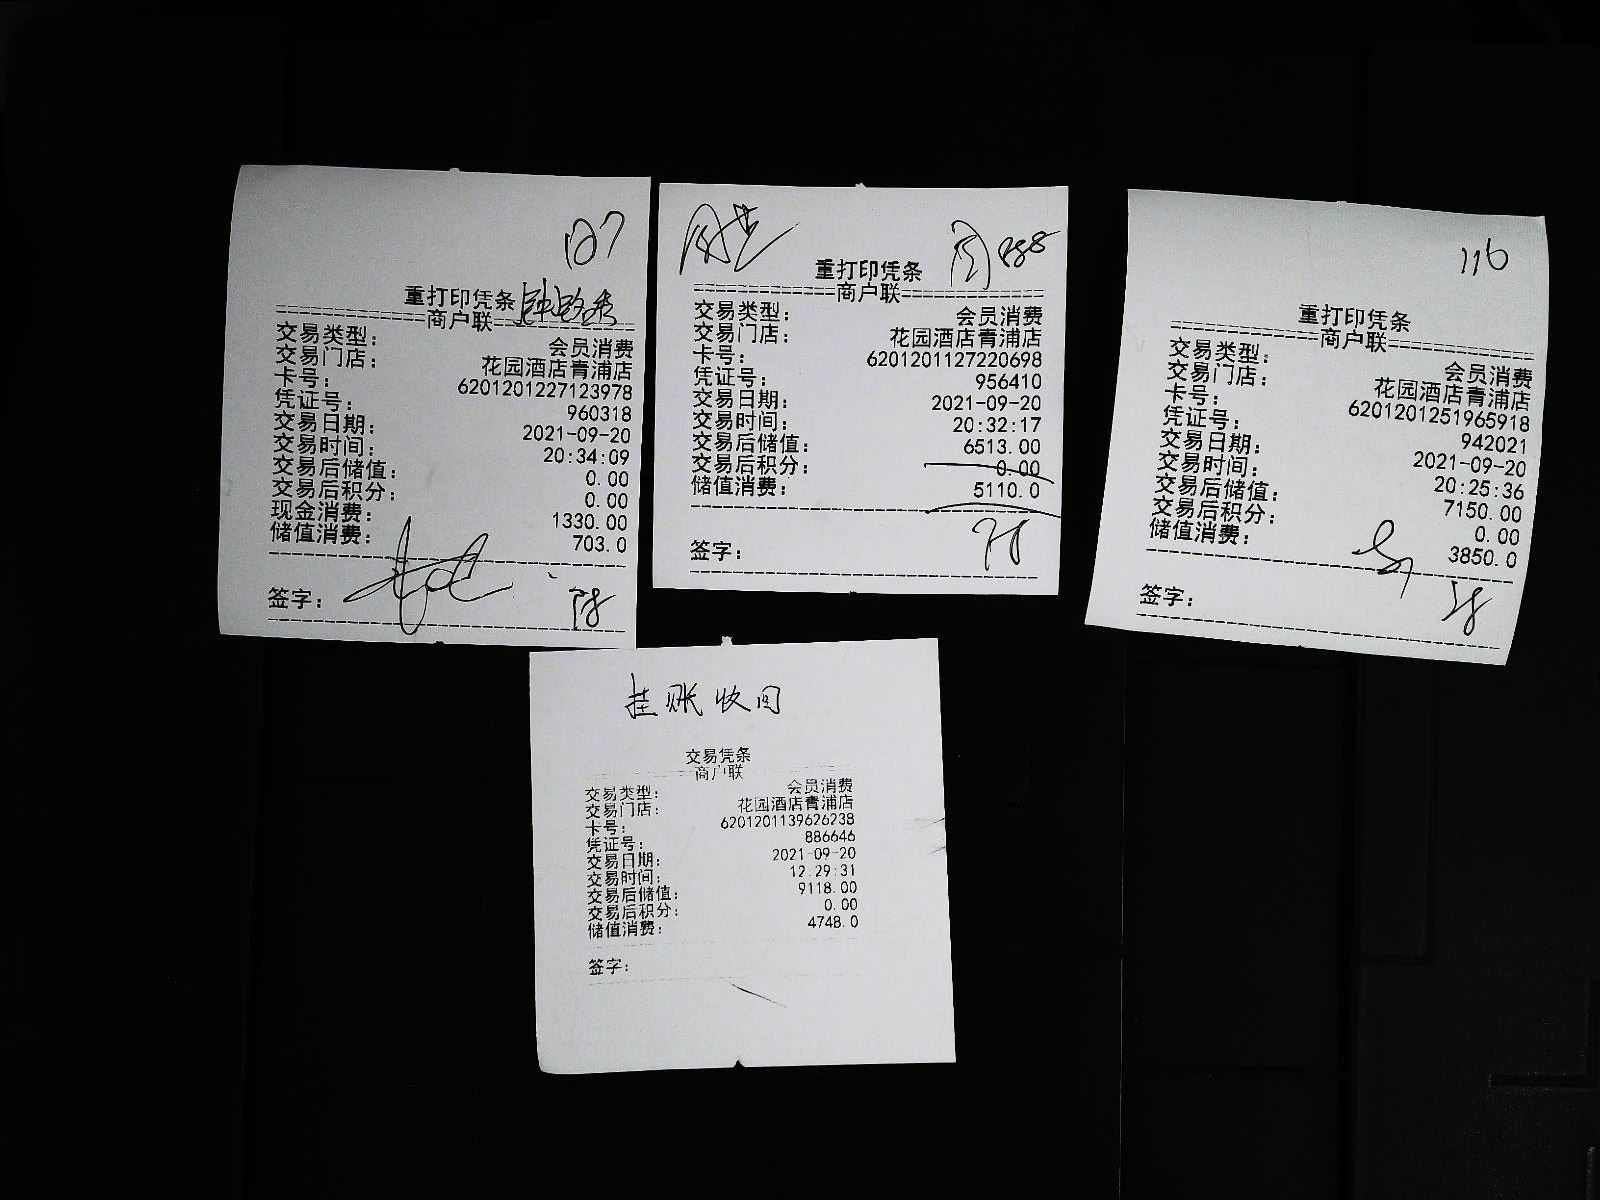 107
重打印凭条
商户联
交易类型: 会员消费
交易门店: 花园酒店青浦店
卡号: 6201201227123978
凭证号: 960318
交易日期: 2021-09-20
交易时间: 20:34:09
交易后储值: 0.00
交易后积分: 0.00
现金消费: 1330.00
储值消费: 703.0
签字:
888
重打印凭条
商户联
交易类型: 会员消费
交易门店: 花园酒店青浦店
卡号: 6201201127220698
凭证号: 956410
交易日期: 2021-09-20
交易时间: 20:32:17
交易后储值: 6513.00
交易后积分: 0.00
储值消费: 5110.0
签字:
116
重打印凭条
商户联
交易类型: 会员消费
交易门店: 花园酒店青浦店
卡号: 6201201251965918
凭证号: 942021
交易日期: 2021-09-20
交易时间: 20:25:36
交易后储值: 7150.00
交易后积分: 0.00
储值消费: 3850.0
签字:
挂账收回
交易凭条
商户联
交易类型: 会员消费
交易门店: 花园酒店青浦店
卡号: 6201201139626238
凭证号: 886646
交易日期: 2021-09-20
交易时间: 12:29:31
交易后储值: 9118.00
交易后积分: 0.00
储值消费: 4748.0
签字: